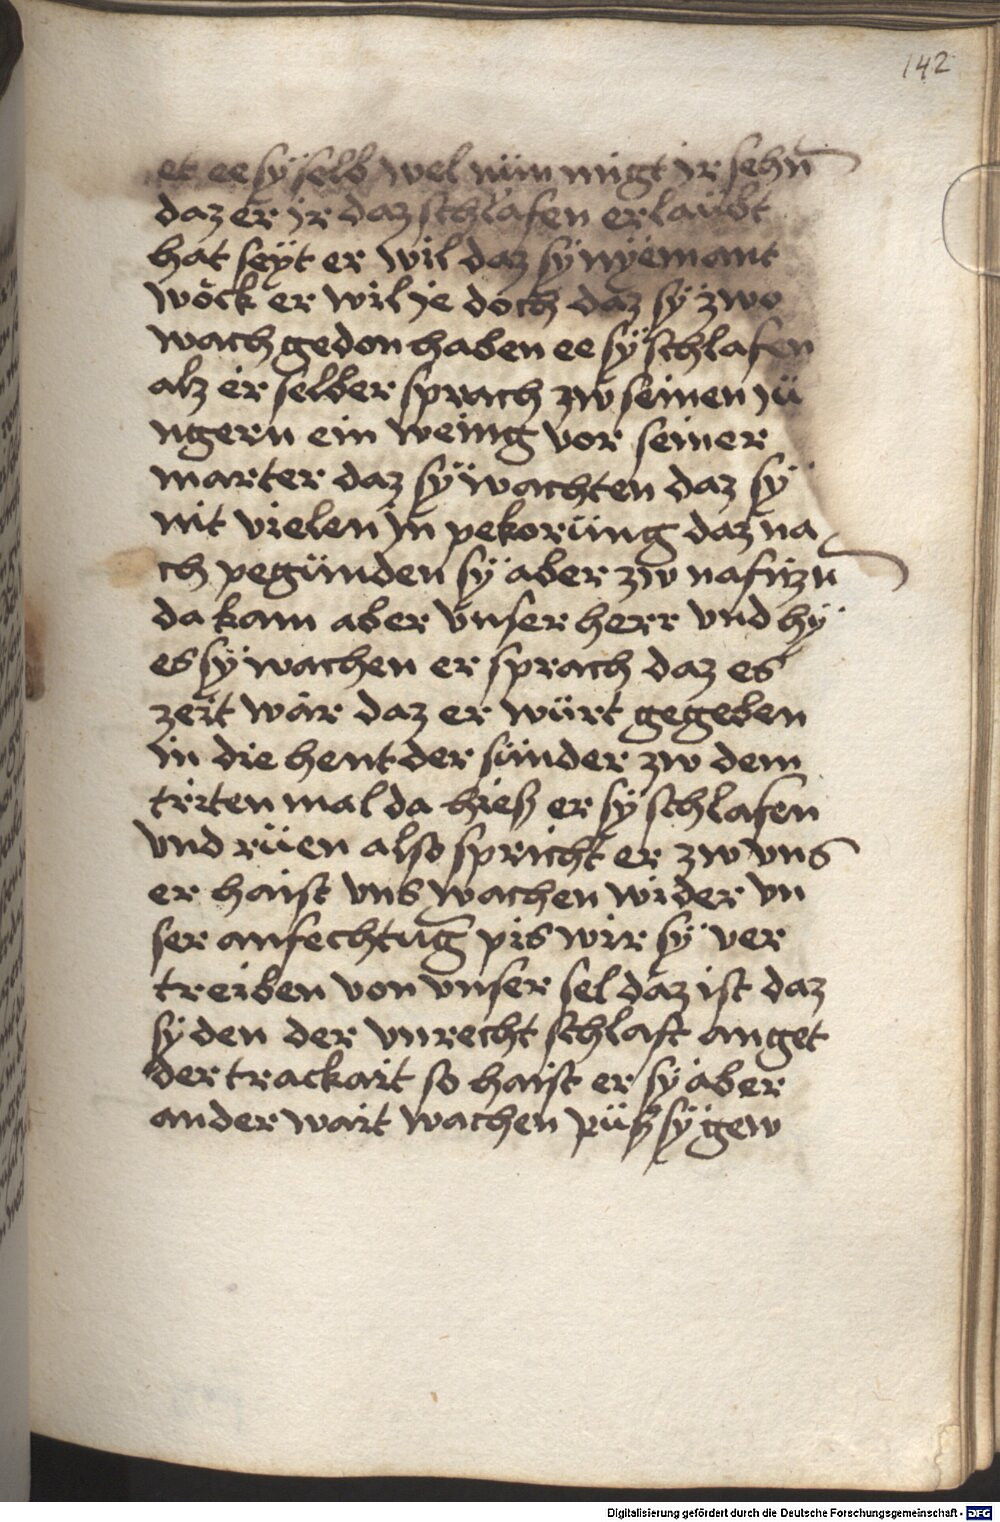 142
et ee sÿ selb wel nüm migt jr sehn̄
daz er jr daz schlafen erlaubt
hat seÿt er wil daz sÿ nÿemant
wöck er wil je doch daz sÿ zwo
wach gedon haben ee sÿ schlafen
alz er selber sprach zw seinen jü
ngern ein wenig vor seiner
marter daz sÿ wachten daz sÿ
nit vielen jn pekorüng daz na
ch pegünden sÿ aber zw nafitzn̄
da kam aber vnser herr vnd hÿ
es sÿ wachen er sprach daz es
zeit wär daz er würt gegeben
in die hent der sünder zw dem
triten mal da hieß er sÿ schlafen
vnd rüen also spricht er zw vns
er haist vns wachen wider vn
ser anfechtuḡ pis wir sÿ ver
treiben von vnser sel daz ist daz
sÿ den der vnrecht schlaft anget
der trackait so haist er sÿ aber
ander wait wachen püß sÿ gew
Digitalisierung gefördert durch die Deutsche Forschungsgemeinschaft - DFG